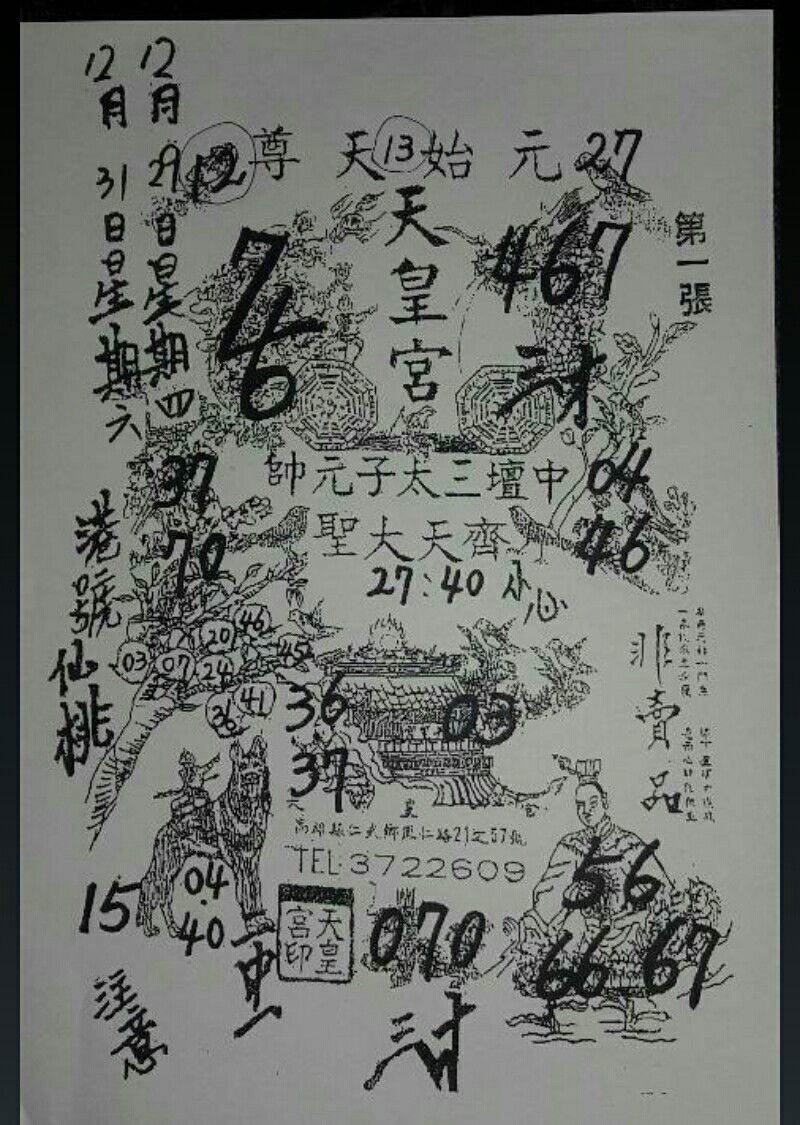 12月29日星期四
12月31日星期六
12 尊 天 13 始 元 27
天皇宮
第一張
76
467
三才
37
70
帥元子太三壇中
04
46
聖大天齊
27:40 小心
港號
仙桃
46
20
45
03
07
24
41
36
36
37
03
非賣品
TEL:3722609
15
04.40
一中一
天皇宮印
070
三才
56
66 67
注意